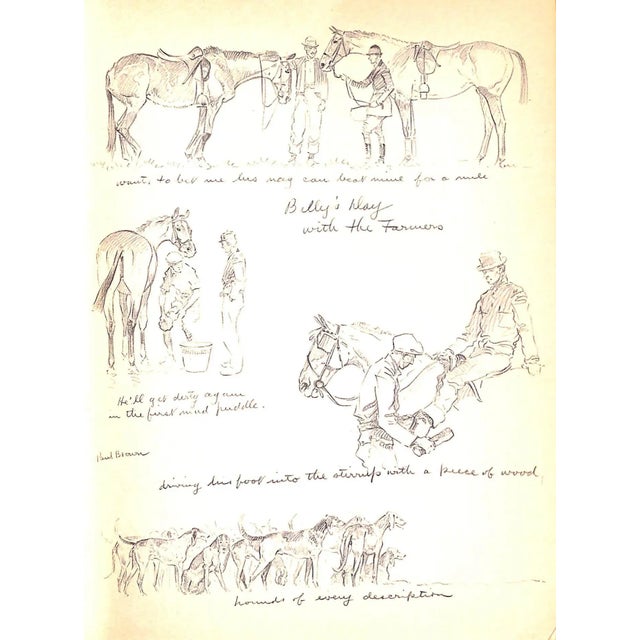 wants to bet me his nag can beat mine for a mile
Billy's Day
with the Farmers
He'll get dirty again
in the first mud puddle.
Paul Brown
driving his foot into the stirrup with a piece of wood,
hounds of every description